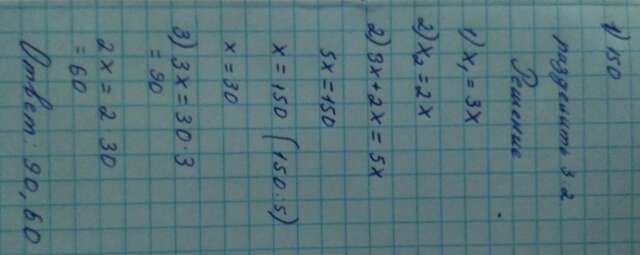 1) 150
разделить 3 2
Решение
1) x₁ = 3x
2) x₂ = 2x
2) 3x + 2x = 5x
5x = 150
x = 150 (150:5)
x = 30
3) 3x = 30·3
= 90
2x = 2 30
= 60
Ответ: 90, 60